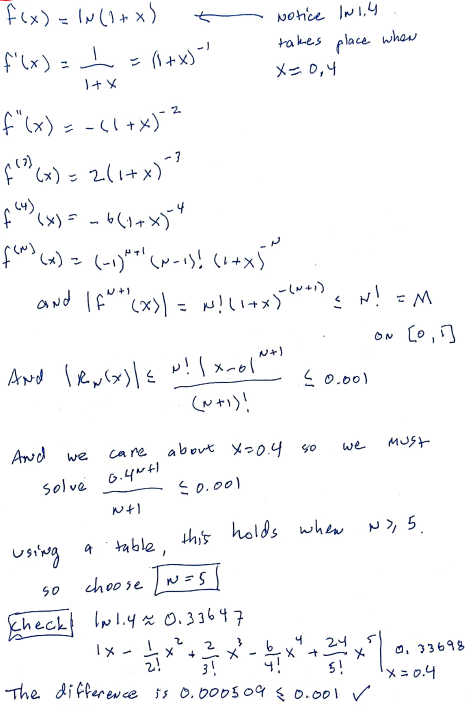 f(x) = ln(1+x) ← notice ln 1.4
takes place when
x = 0,4
f'(x) = 1/(1+x) = (1+x)^-1
f"(x) = -(1+x)^-2
f^(3)(x) = 2(1+x)^-3
f^(4)(x) = -6(1+x)^-4
f^(N)(x) = (-1)^N+1 (N-1)! (1+x)^-N
and |f^N+1(x)| = N!(1+x)^-(N+1) ≤ N! = M
on [0,1]
And |R_N(x)| ≤ N! |x-0|^N+1 / (N+1)! ≤ 0.001
And we care about x=0.4 so we must
solve 0.4^N+1 / N+1 ≤ 0.001
using a table, this holds when N ≥ 5.
so choose N=5
Check ln 1.4 ≈ 0.33647
1x - 1/2! x^2 + 2/3! x^3 - 6/4! x^4 + 24/5! x^5 | x=0.4 0.33698
The difference is 0.000509 ≤ 0.001 ✓